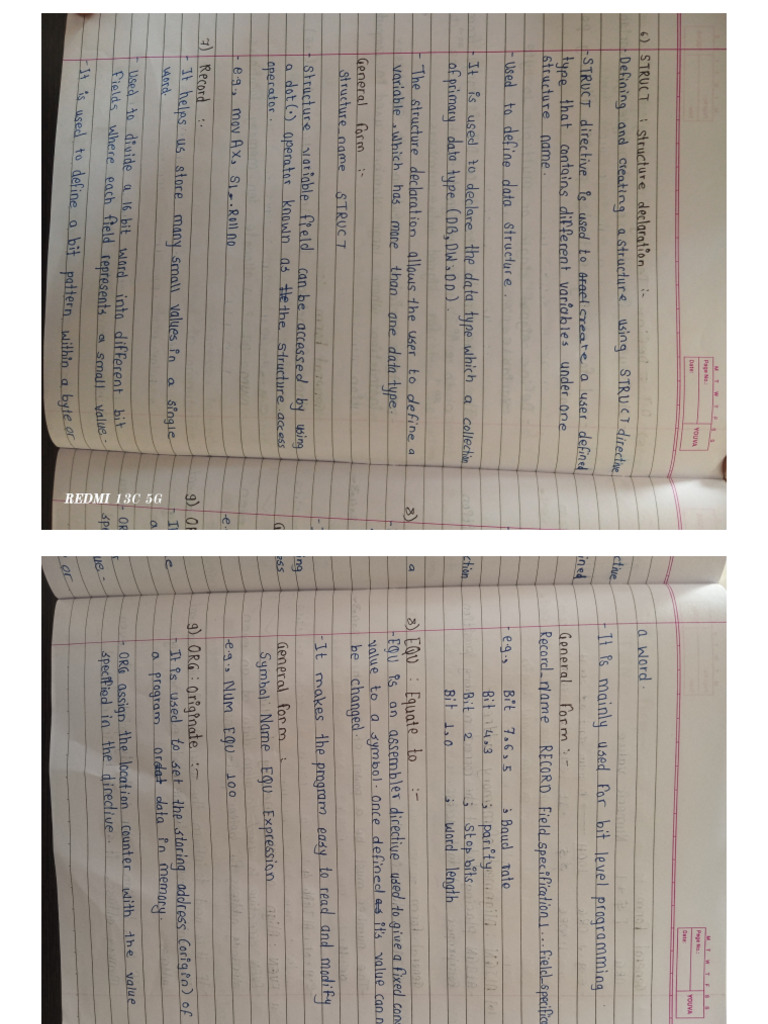 M T W T F S S
Page No.:
Date:
YOUVA
6) STRUCT : Structure declaration :-
Defining and creating a structure using STRUCT directive
- STRUCT directive is used to create a user defined
type that contains different variables under one
structure name.
- Used to define data structure.
- It is used to declare the data type which a collection
of primary data type (DB, DW, DD).
- The structure declaration allows the user to define a
variable, which has more than one data type.
General form :-
Structure_name STRUCT
- Structure variable field can be accessed by using
a dot(.) operator known as the structure access
operator.
- e.g., mov AX, S1.Rollno
7) Record :-
- It helps us store many small values in a single
word.
- Used to divide a 16 bit word into different bit
fields where each field represents a small value.
- It is used to define a bit pattern within a byte or
8)
9) OR
REDMI 13C 5G
M T W T F S S
Page No.:
Date:
YOUVA
ctive
ined
ction
a
ing
ess
e
ue -
or
a word.
- It is mainly used for bit level programming
General Form :-
Record_Name RECORD Field_specification1, ... field_specifica
- e.g., Bit 7,6,5 ; Baud rate
Bit 4,3 ; parity
Bit 2 ; Stop bits
Bit 1,0 ; word length
8) EQU : Equate to :-
- EQU is an assembler directive used to give a fixed con
value to a symbol. Once defined it's value can n
be changed.
- It makes the program easy to read and modify
General form :
Symbol Name EQU Expression
- e.g., NUM EQU 100
9) ORG : Originate :-
- It is used to set the staring address (origin) of
a program or data in memory.
- ORG assign the location counter with the value
specified in the directive.